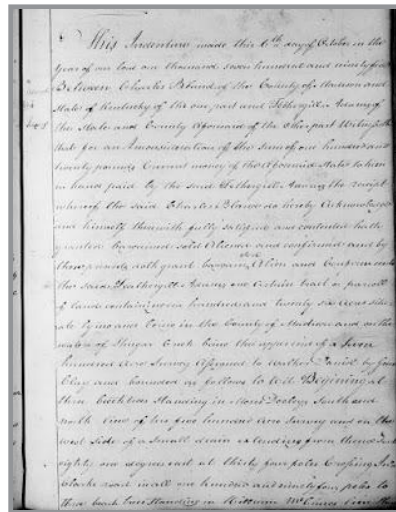 This Indenture made this 6th day of October in the
year of our Lord one thousand seven hundred and ninety five
Between Charles Blound of the County of Madison and
State of Kentucky of the one part and Fothergill Adams of
the State and County aforesaid of the other part Witnesseth
that for an Inconsideration of the Sum of one hundred and
twenty pounds Current money of the aforesaid State to him
in hand paid by the said Fothergill Adams the receipt
whereof the said Charles Blound do hereby acknowledge
and himself therewith fully satisfied and contented hath
granted bargained sold Aliened and confirmed and by
these presents doth grant bargain sell Alien and Confirm unto
the said Fothergill Adams one Certain tract or parcell
of land containing one hundred and twenty six acres
lying and being in the County of Madison and on the
waters of Shugar Creek being the part of a Seven
hundred Acre Survey Assigned to by Green
Clay and bounded as follows to wit Begining at
three beech trees Standing in South and
north line of five hundred Acre Survey and on the
west side of a small drain extending from thence South
eighty one degrees east at thirty four poles Crossing
Clarks road in all one hundred and ninety four poles to
three beech trees Standing in William line